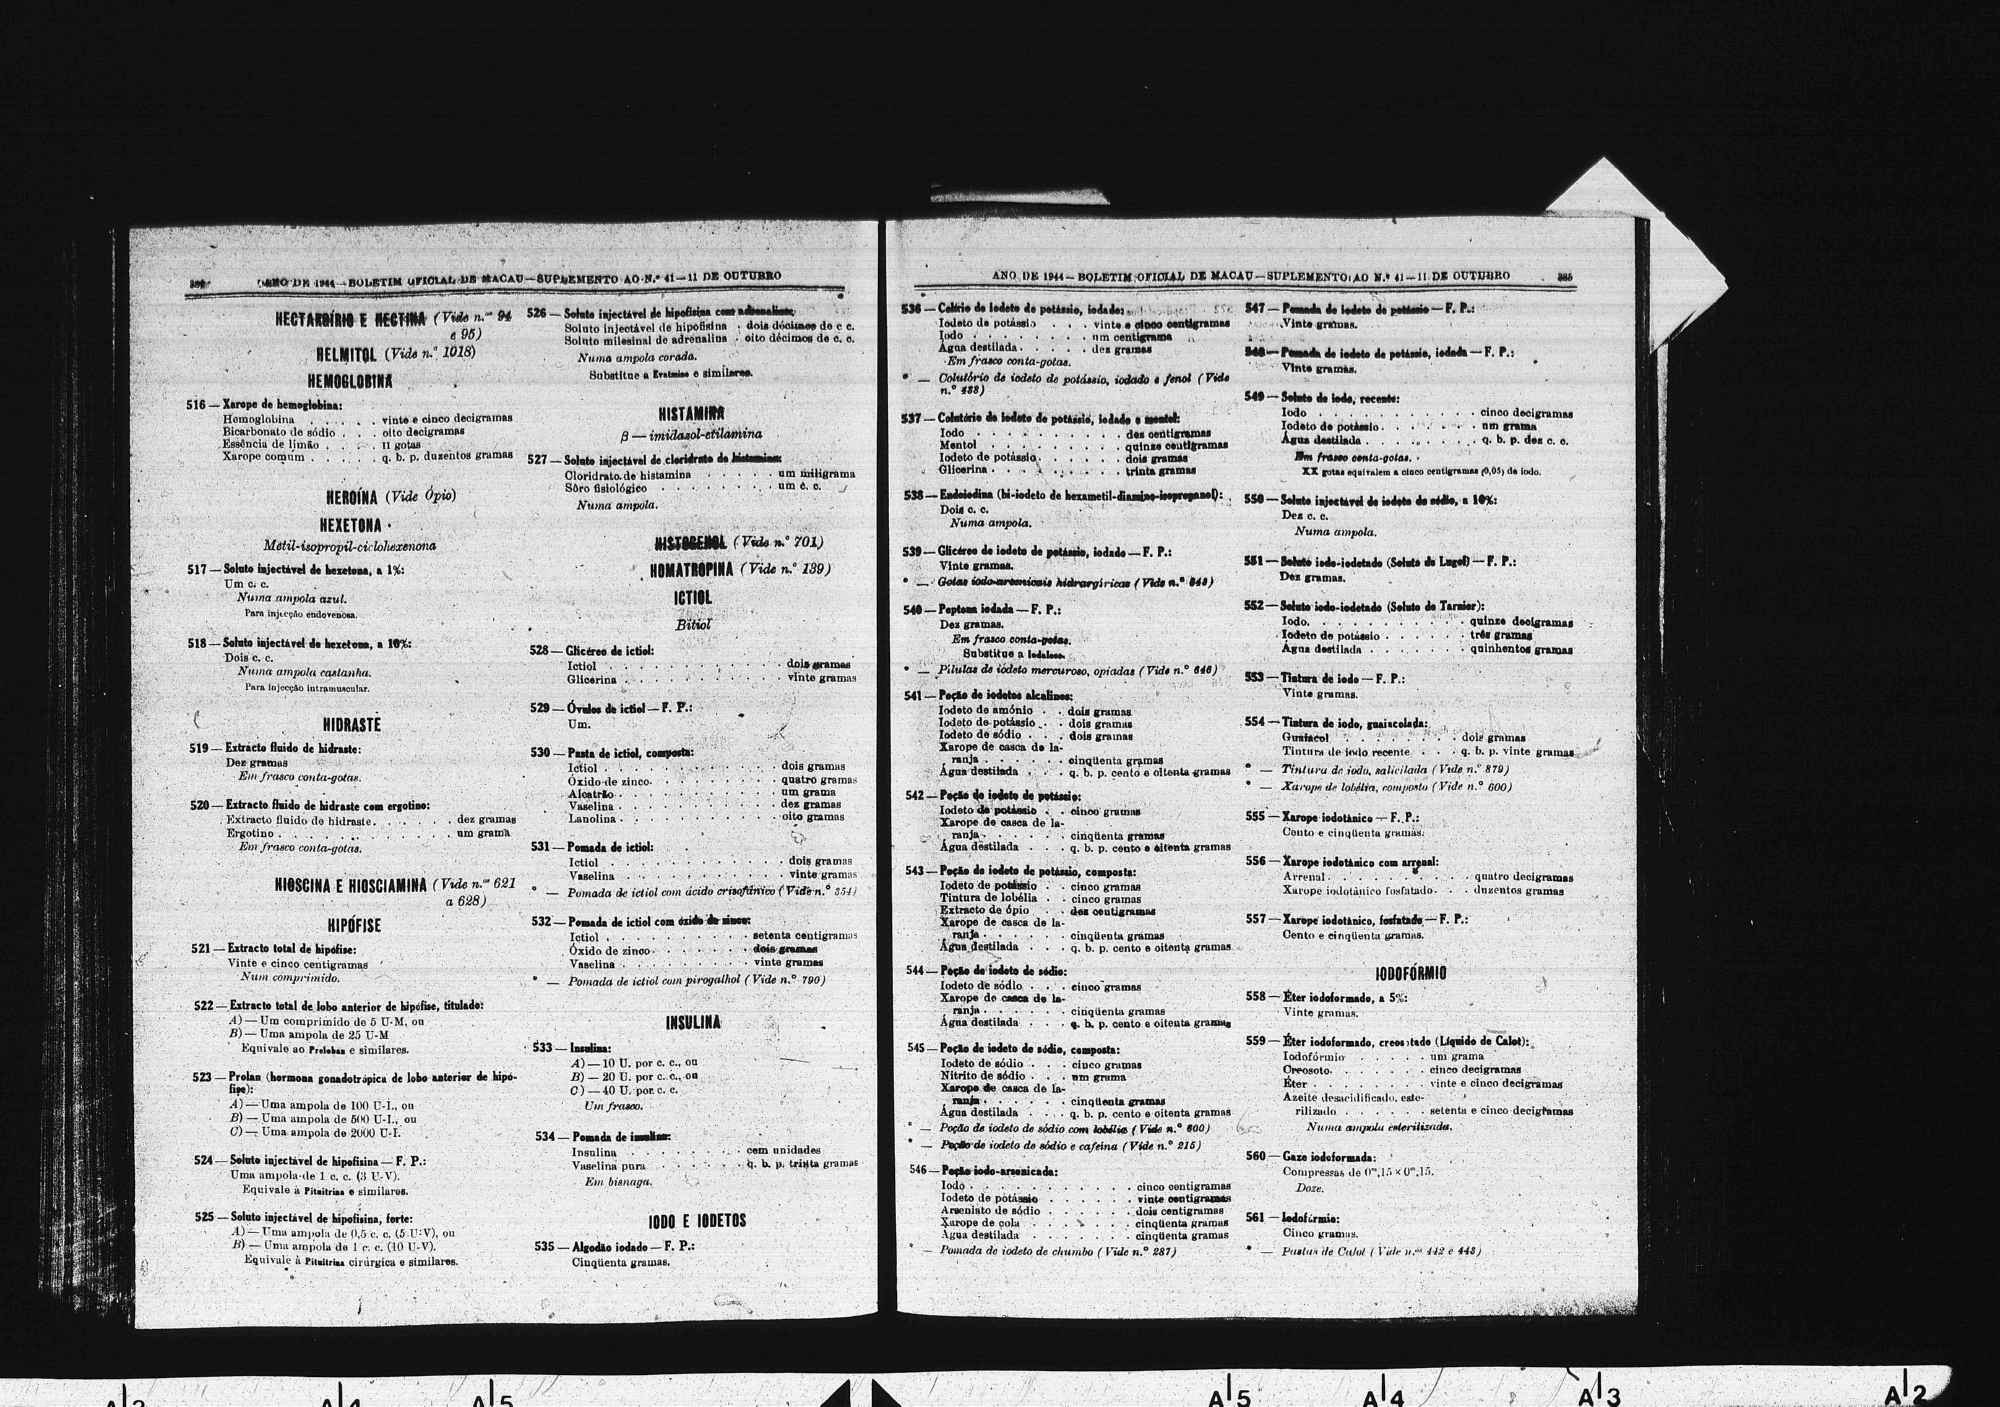 ANO DE 1944 — BOLETIM OFICIAL DE MACAU — SUPLEMENTO AO N.º 41 — 11 DE OUTUBRO
HECTARGÍRIO E HECTINA (Vide n.os 94
e 95)
HELMITOL (Vide n.º 1018)
HEMOGLOBINA
516 — Xarope de hemoglobina:
Hemoglobina . . . . . vinte e cinco decigramas
Bicarbonato de sódio . . . oito decigramas
Essência de limão . . . . II gotas
Xarope comum . . . . . q. b. p. duzentos gramas
HEROÍNA (Vide Ópio)
HEXETONA
Metil-isopropil-ciclohexenona
517 — Soluto injectável de hexetona, a 1%:
Um c. c.
Numa ampola azul.
Para injecção endovenosa.
518 — Soluto injectável de hexetona, a 10%:
Dois c. c.
Numa ampola castanha.
Para injecção intramuscular.
HIDRASTE
519 — Extracto fluido de hidraste:
Dez gramas
Em frasco conta-gotas.
520 — Extracto fluido de hidraste com ergotino:
Extracto fluido de hidraste. . . . . . dez gramas
Ergotino . . . . . . . . . . . um grama
Em frasco conta-gotas.
HIOSCINA E HIOSCIAMINA (Vide n.os 621
a 628)
HIPÓFISE
521 — Extracto total de hipófise:
Vinte e cinco centigramas
Num comprimido.
522 — Extracto total de lobo anterior de hipófise, titulado:
A) — Um comprimido de 5 U-M, ou
B) — Uma ampola de 25 U-M
Equivale ao Preloban e similares.
523 — Prolan (hormona gonadotrópica de lobo anterior de hipó-
fise):
A) — Uma ampola de 100 U-I., ou
B) — Uma ampola de 500 U-I., ou
C) — Uma ampola de 2000 U-I.
524 — Soluto injectável de hipofisina — F. P.:
Uma ampola de 1 c. c. (3 U-V).
Equivale à Pituitrina e similares.
525 — Soluto injectável de hipofisina, forte:
A) — Uma ampola de 0,5 c. c. (5 U-V), ou
B) — Uma ampola de 1 c. c. (10 U-V).
Equivale à Pituitrina cirúrgica e similares.
526 — Soluto injectável de hipofisina com adrenalina:
Soluto injectável de hipofisina . dois décimos de c c.
Soluto milesinal de adrenalina . oito décimos de c. c.
Numa ampola corada.
Substitue a Evatmine e similares.
HISTAMINA
β — imidazol-etilamina
527 — Soluto injectável de cloridrato de histamina:
Cloridrato de histamina . . . . . um miligrama
Sôro fisiológico . . . . . . . . um c. c.
Numa ampola.
HISTOGENOL (Vide n.º 701)
HOMATROPINA (Vide n.º 139)
ICTIOL
Bitiol
528 — Glicéreo de ictiol:
Ictiol . . . . . . . . . . . dois gramas
Glicerina . . . . . . . . . . vinte gramas
529 — Óvulos de ictiol — F. P.:
Um.
530 — Pasta de ictiol, composta:
Ictiol . . . . . . . . . . . dois gramas
Óxido de zinco. . . . . . . . . quatro gramas
Alcatrão . . . . . . . . . . um grama
Vaselina . . . . . . . . . . dez gramas
Lanolina . . . . . . . . . . oito gramas
531 — Pomada de ictiol:
Ictiol . . . . . . . . . . . dois gramas
Vaselina . . . . . . . . . . vinte gramas
* — Pomada de ictiol com ácido crisofânico (Vide n.º 354)
532 — Pomada de ictiol com óxido de zinco:
Ictiol . . . . . . . . . setenta centigramas
Óxido de zinco . . . . . . . dois gramas
Vaselina . . . . . . . . . vinte gramas
* — Pomada de ictiol com pirogalhol (Vide n.º 790)
INSULINA
533 — Insulina:
A) — 10 U. por c. c., ou
B) — 20 U. por c. c., ou
C) — 40 U. por c. c.
Um frasco.
534 — Pomada de insulina:
Insulina . . . . . . . . cem unidades
Vaselina pura . . . . . . q. b. p. trinta gramas
Em bisnaga.
IODO E IODETOS
535 — Algodão iodado — F. P.:
Cinqüenta gramas.
ANO DE 1944 — BOLETIM OFICIAL DE MACAU — SUPLEMENTO AO N.º 41 — 11 DE OUTUBRO 385
536 — Colírio de iodeto de potássio, iodado:
Iodeto de potássio . . . vinte e cinco centigramas
Iodo . . . . . . . . um centigrama
Água destilada . . . . . dez gramas
Em frasco conta-gotas.
* — Colutório de iodeto de potássio, iodado e fenol (Vide
n.º 438)
537 — Colutório de iodeto de potássio, iodado e mentol:
Iodo . . . . . . . . . dez centigramas
Mentol . . . . . . . . quinze centigramas
Iodeto de potássio. . . . . . dois gramas
Glicerina . . . . . . . . trinta gramas
538 — Endoiodina (bi-iodeto de hexametil-diamino-isopropanol):
Dois c. c.
Numa ampola.
539 — Glicéreo de iodeto de potássio, iodado — F. P.:
Vinte gramas.
* — Gotas iodo-arsenicais hidrargíricas (Vide n.º 643)
540 — Peptona iodada — F. P.:
Dez gramas.
Em frasco conta-gotas.
Substitue a Iodalose.
* — Pílulas de iodeto mercuroso, opiadas (Vide n.º 646)
541 — Poção de iodetos alcalinos:
Iodeto de amónio . . dois gramas
Iodeto de potássio . . dois gramas
Iodeto de sódio . . . dois gramas
Xarope de casca de la-
ranja . . . . . . cinqüenta gramas
Água destilada . . . q. b. p. cento e oitenta gramas
542 — Poção de iodeto de potássio:
Iodeto de potássio . . cinco gramas
Xarope de casca de la-
ranja . . . . . . cinqüenta gramas
Água destilada . . . q. b. p. cento e oitenta gramas
543 — Poção de iodeto de potássio, composta:
Iodeto de potássio . . cinco gramas
Tintura de lobélia . . cinco gramas
Extracto de ópio . . dez centigramas
Xarope de casca de la-
ranja . . . . . . cinqüenta gramas
Água destilada . . . q. b. p. cento e oitenta gramas
544 — Poção de iodeto de sódio:
Iodeto de sódio . . . cinco gramas
Xarope de casca de la-
ranja . . . . . . cinqüenta gramas
Água destilada . . . q. b. p. cento e oitenta gramas
545 — Poção de iodeto de sódio, composta:
Iodeto de sódio . . . cinco gramas
Nitrito de sódio . . . um grama
Xarope de casca de la-
ranja . . . . . . cinqüenta gramas
Água destilada . . . q. b. p. cento e oitenta gramas
* — Poção de iodeto de sódio com lobélia (Vide n.º 600)
* — Poção de iodeto de sódio e cafeína (Vide n.º 215)
546 — Poção iodo-arsenicada:
Iodo . . . . . . . . . . cinco centigramas
Iodeto de potássio . . . . . . vinte centigramas
Arseniato de sódio . . . . . . dois centigramas
Xarope de cola . . . . . . . cinqüenta gramas
Água destilada . . . . . . . cinqüenta gramas
* — Pomada de iodeto de chumbo (Vide n.º 287)
547 — Pomada de iodeto de potássio — F. P.:
Vinte gramas.
548 — Pomada de iodeto de potássio, iodada — F. P.:
Vinte gramas.
549 — Soluto de iodo, recente:
Iodo . . . . . . . . . . . cinco decigramas
Iodeto de potássio . . . . . . . um grama
Água destilada . . . . . . . . q. b. p. dez c. c.
Em frasco conta-gotas.
XX gotas equivalem a cinco centigramas (0,05) de iodo.
550 — Soluto injectável de iodeto de sódio, a 10%:
Dez c. c.
Numa ampola.
551 — Soluto iodo-iodetado (Soluto de Lugol) — F. P.:
Dez gramas.
552 — Soluto iodo-iodetado (Soluto de Tarnier):
Iodo. . . . . . . . . . . quinze decigramas
Iodeto de potássio . . . . . . três gramas
Água destilada . . . . . . . quinhentos gramas
553 — Tintura de iodo — F. P.:
Vinte gramas.
554 — Tintura de iodo, guaiacolada:
Guaiacol . . . . . . . . . dois gramas
Tintura de iodo recente . . . q. b. p. vinte gramas
* — Tintura de iodo, salicilada (Vide n.º 879)
* — Xarope de lobélia, composto (Vide n.º 600)
555 — Xarope iodotânico — F. P.:
Cento e cinqüenta gramas.
556 — Xarope iodotânico com arrenal:
Arrenal . . . . . . . . . . quatro decigramas
Xarope iodotânico fosfatado . . . duzentos gramas
557 — Xarope iodotânico, fosfatado — F. P.:
Cento e cinqüenta gramas.
IODOFÓRMIO
558 — Éter iodoformado, a 5%:
Vinte gramas.
559 — Éter iodoformado, creosotado (Líquido de Calot):
Iodofórmio . . . . . um grama
Creosoto. . . . . . . cinco decigramas
Éter . . . . . . . . vinte e cinco decigramas
Azeite desacidificado, este-
rilizado . . . . . . setenta e cinco decigramas
Numa ampola esterilizada.
560 — Gaze iodoformada:
Compressas de 0m,15 × 0m,15.
Doze.
561 — Iodofórmio:
Cinco gramas.
* — Pastas de Calot (Vide n.os 442 e 443)
A|5 A|5 A|4 A|3 A|2